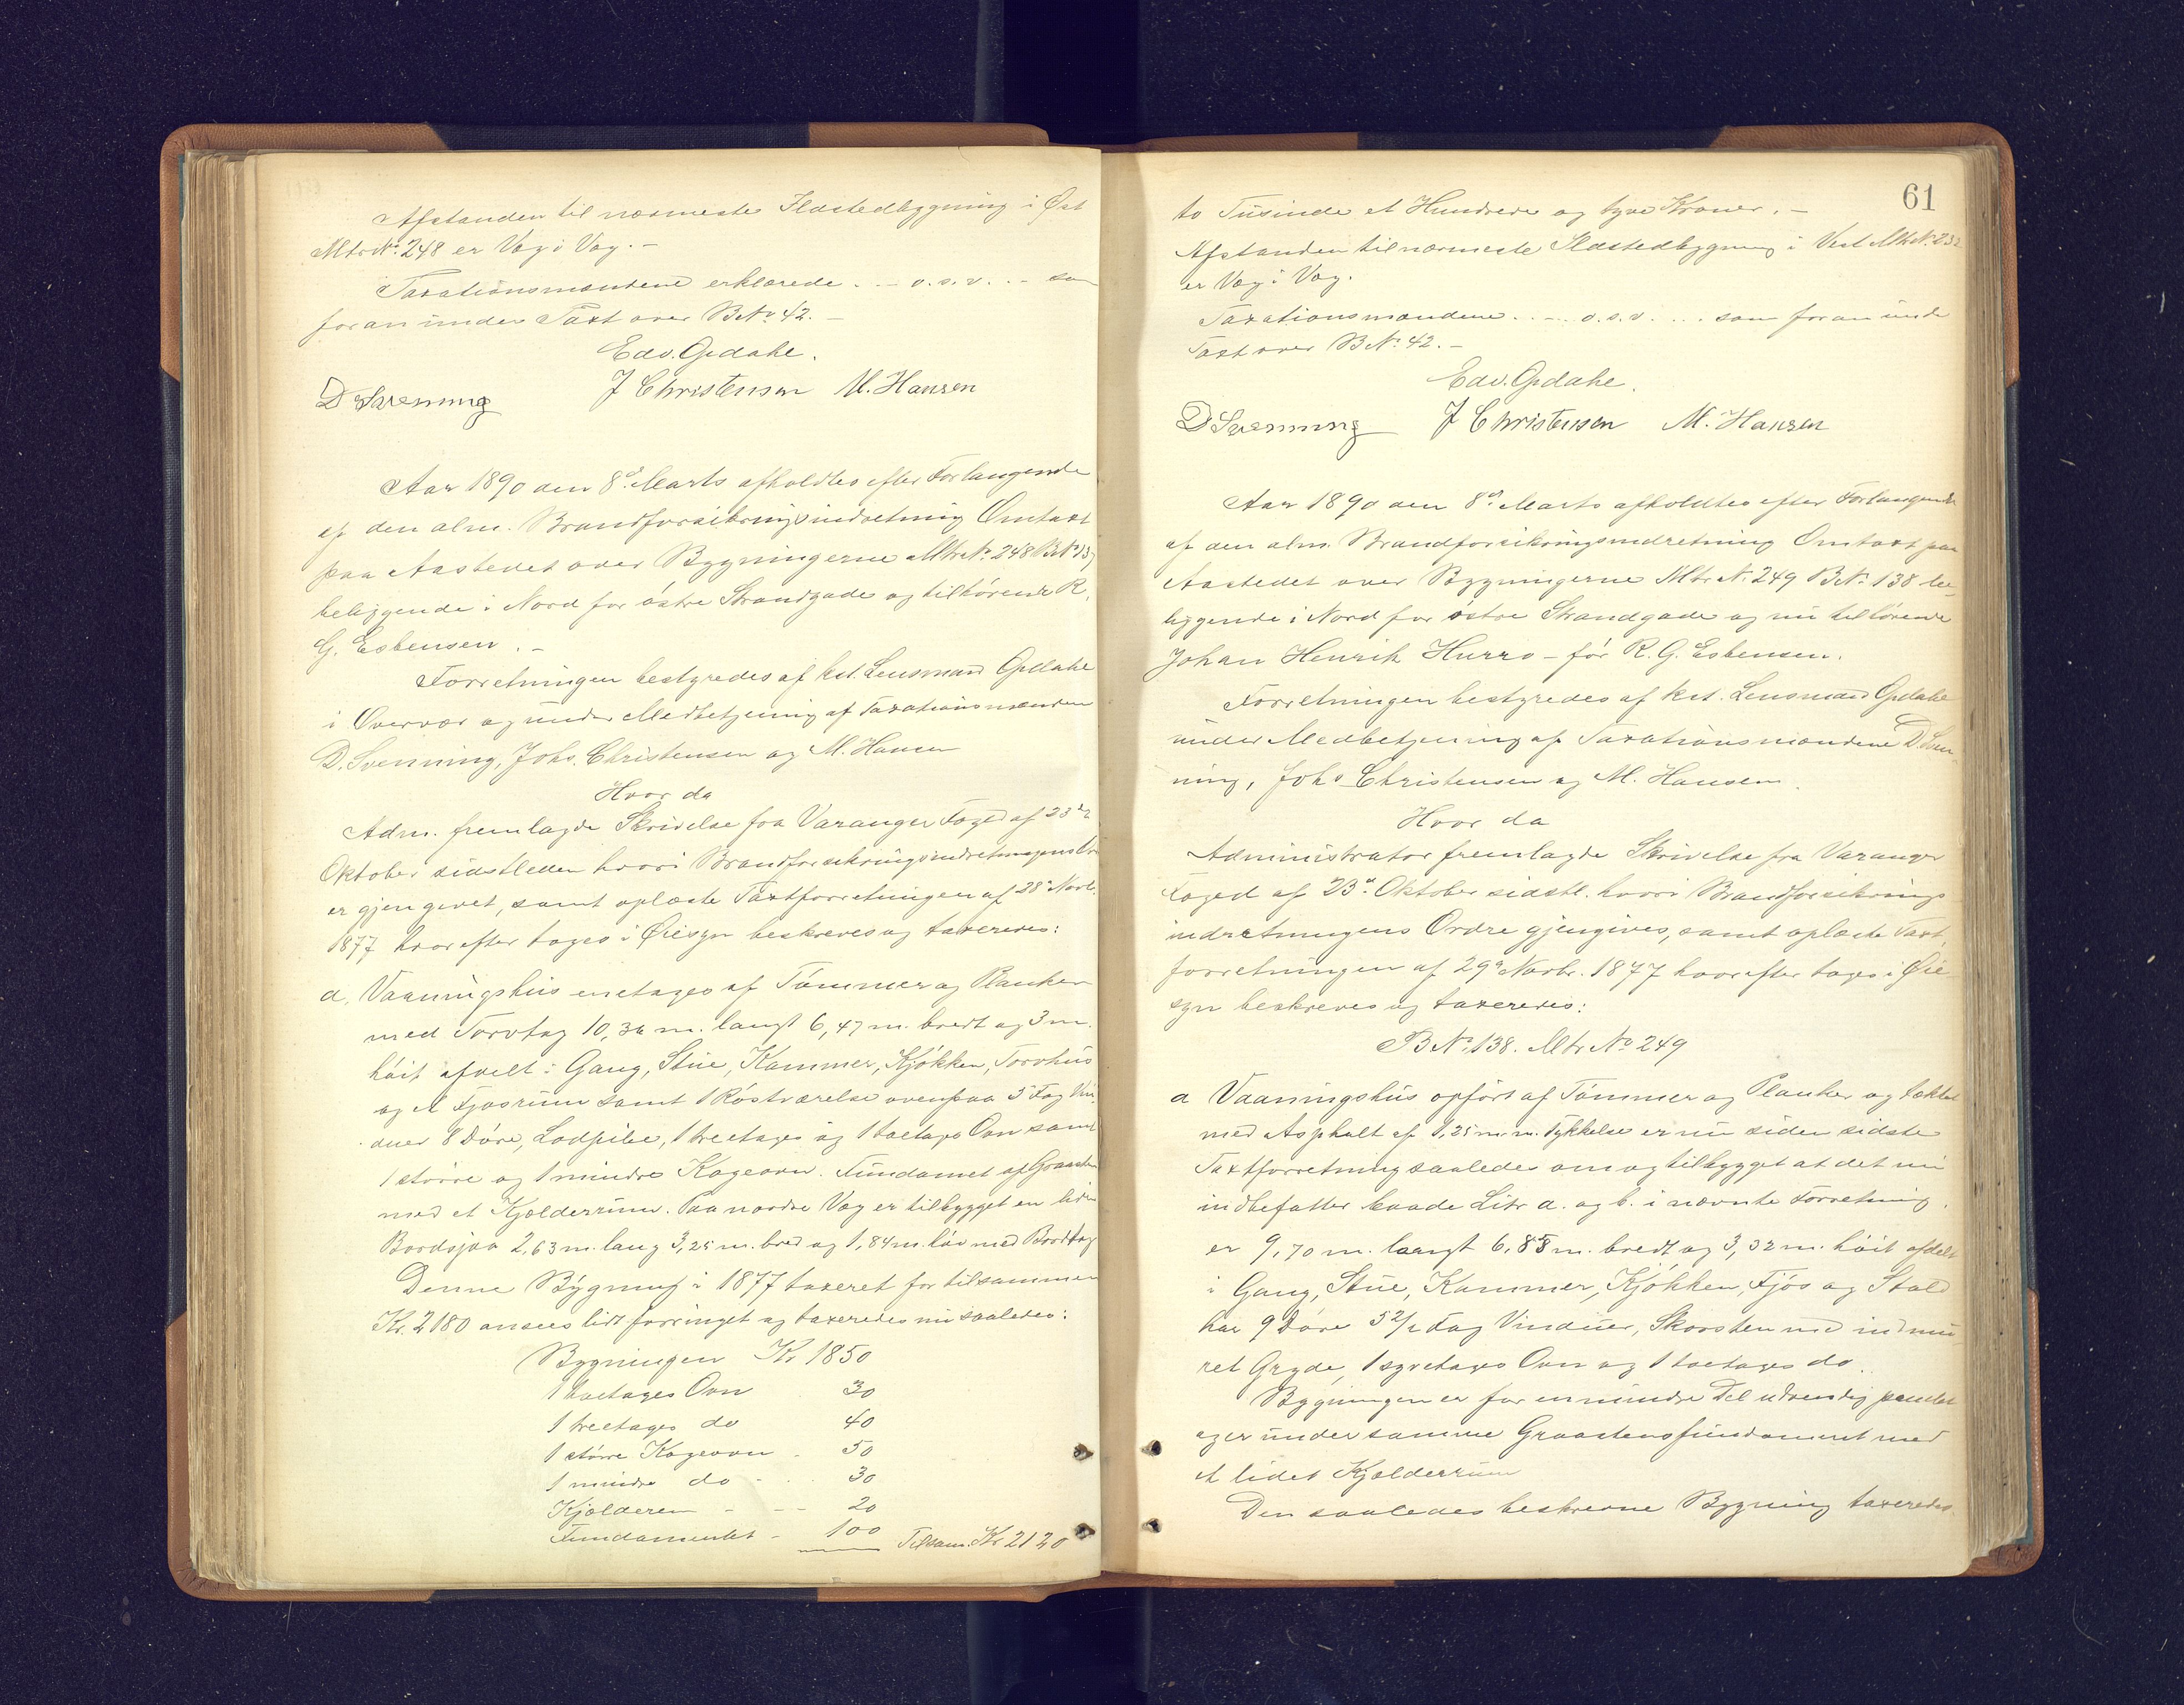 Afstanden til nærmeste Ildstedbygning i Øst
Mtr.No. 248 er Væg i Væg. –
Taxationsmændene erklærede . . – o.s.v. . – som
foran under Taxt over BNo. 42. –
Edv. Opdahl.
D Svenning J Christensen M. Hansen
Aar 1890 den 8de Marts afholdtes efter Forlangende
af den alm. Brandforsikringsindretning Omtaxt
paa Aastedet over Bygningerne Mtr.No. 248 BNo. 137
beliggende i Nord for østre Strandgade og tilhørende R.
G. Esbensen. –
Forretningen bestyredes af kst. Lensmand Opdahl
i Overvær og under Medbetjening af Taxationsmændene
D. Svenning, Johs. Christensen og M. Hansen
Hvor da
Adm. fremlagde Skrivelse fra Varanger Foged af 23de
Oktober sidstleden hvori Brandforsikringsindretningens Ordre
er gjengivet, samt oplæste Taxtforretningen af 28de Novbr.
1877 hvorefter toges i Øiesyn beskreves og taxeredes:
a, Vaaningshus enetages af Tømmer og Planker
med Torvtag 10,36 m. langt 6,47 m. bredt og 3 m.
høit afdelt i Gang, Stue, Kammer, Kjøkken, Torvhus
og et Fjøsrum samt 1 Røstværelse ovenpaa 5 Fag Vin-
duer 8 Døre, Lodpibe, 1 treetages og 1 toetages Ovn samt
1 større og 1 mindre Kogeovn. Fundamet af Graasten
med et Kjælderrum. Paa nordre Væg er tilbygget en liden
Bordsjaa 2,63 m. lang 3,25 m. bred og 1,84 m. høi med Bordtag
Denne Bygning i 1877 taxeret for tilsammen
Kr. 2180 ansees lidt forringet og taxeredes nu saaledes:
Bygningen Kr 1850
1 toetages Ovn 30
1 treetages do 40
1 større Kogeovn . 50
1 mindre do - . . 30
Kjælderen - - - 20
Fundamentet - 100 Tilsam. Kr 2120
61
to Tusinde et Hundrede og tyve Kroner. –
Afstanden til nærmeste Ildstedbygning i Vest Mtr.No. 232
er Væg i Væg.
Taxationsmændene . . – . . o.s.v. . . . som foran under
Taxt over BNo. 42. –
Edv. Opdahl.
D Svenning J Christensen M. Hansen
Aar 1890 den 8de Marts afholdtes efter Forlangende
af den alm. Brandforsikringsindretning Omtaxt paa
Aastedet over Bygningerne Mtr.No. 249 BNo. 138 be-
liggende i Nord for østre Strandgade og nu tilhørende
Johan Henrik Hurro – før R. G. Esbensen.
Forretningen bestyredes af kst. Lensmand Opdahl
under Medbetjening af Taxationsmændene D. Sven-
ning, Johs Christensen og M. Hansen.
Hvor da
Administrator fremlagde Skrivelse fra Varanger
Foged af 23de Oktober sidstl. hvori Brandforsikrings
indretningens Ordre gjengives, samt oplæste Taxt
forretningen af 29de Novbr. 1877 hvorefter toges i Øie
syn beskreves og taxeredes:
BNo. 138. Mtr No 249
a Vaaningshus opført af Tømmer og Planker og tækket
med Asphalt af 1,25 m.m. Tykkelse er nu siden sidste
Taxtforretning saaledes om og tilbygget at det nu
indbefatter baade Litr a. og b. i nævnte Forretning,
er 9,70 m. langt 6,88 m. bredt og 3,32 m. høit afdelt
i Gang, Stue, Kammer, Kjøkken, Fjøs og Stald
har 9 Døre 5 2/2 Fag Vinduer, Skorsten med indmu-
ret Gryde, 1 syvetages Ovn og 1 toetages do.
Bygningen er for en mindre Del udvendig panelet
og er under samme Graastensfundament med
et lidet Kjælderrum
Den saaledes beskrevne Bygning taxeredes